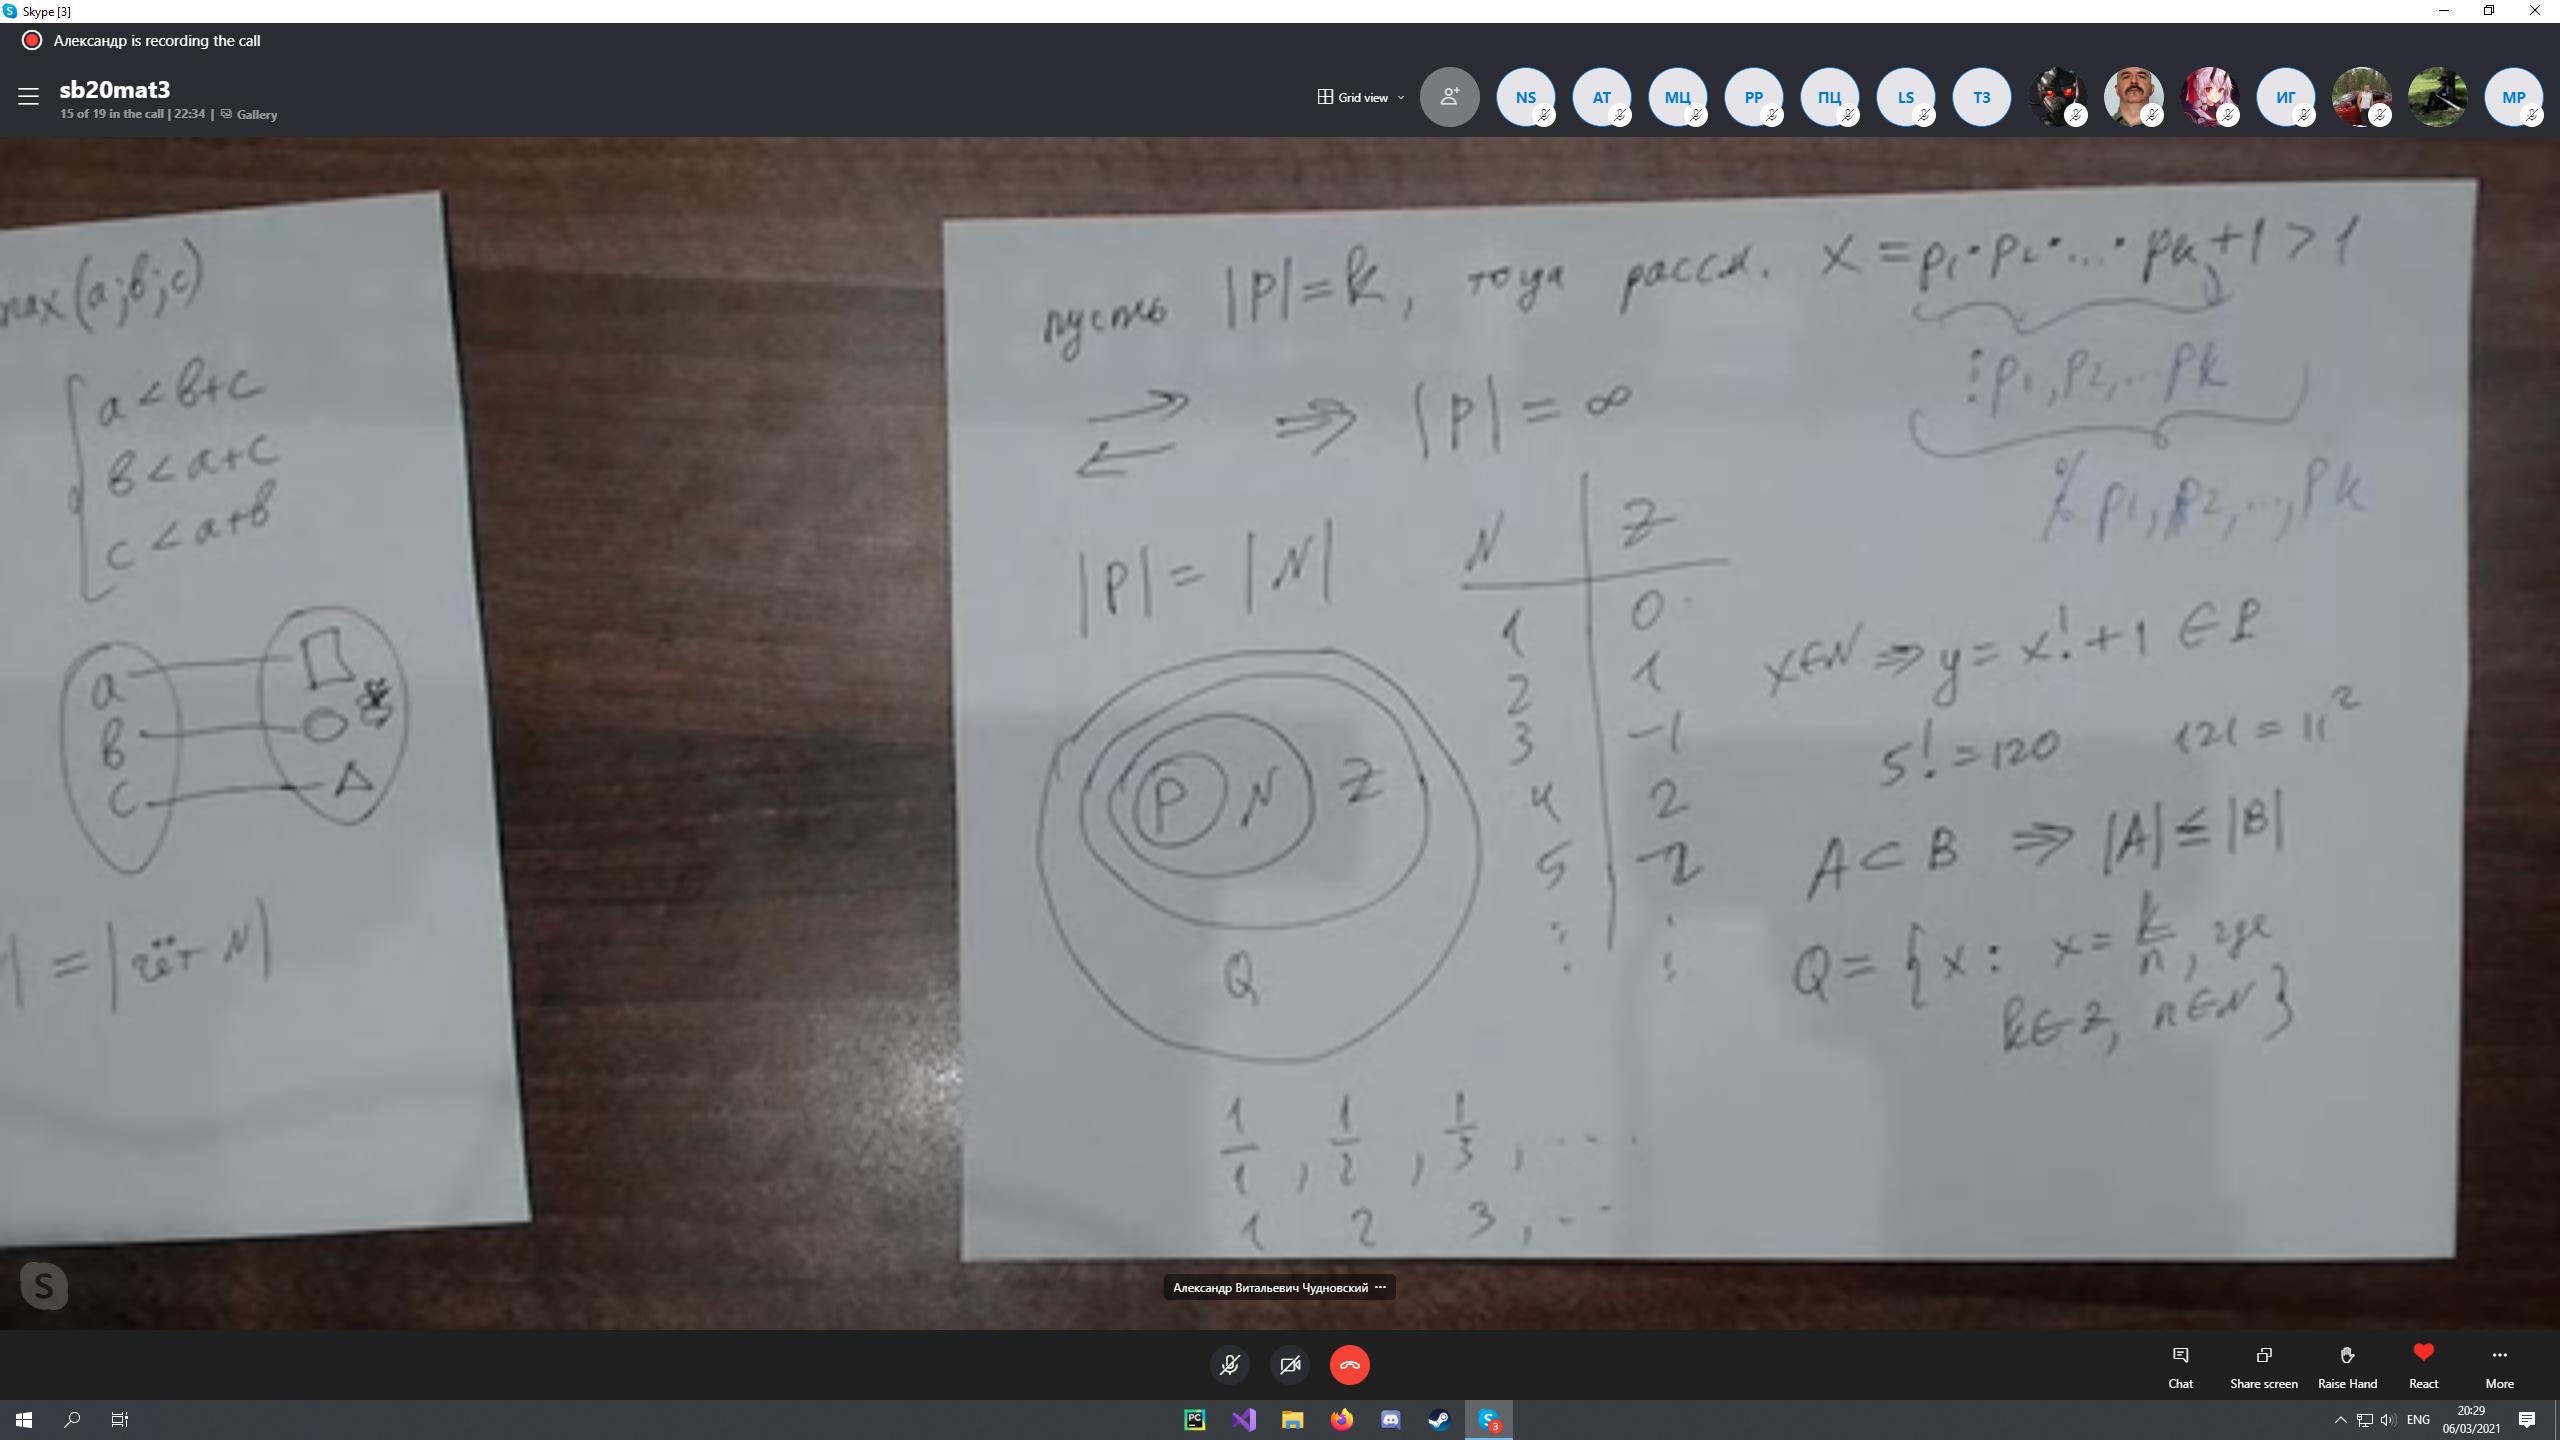 Skype [3]
Александр is recording the call
sb20mat3
15 of 19 in the call | 22:34 | Gallery
Grid view
NS
AT
МЦ
PP
ПЦ
LS
ТЗ
ИГ
MP
max(a;b;c)
a < b+c
b < a+c
c < a+b
a
b
c
| = |чёт N|
пусть |P|=k, тогда рассм. x = p₁·p₂·...·pk+1>1
⋮p₁,p₂,...pk
⇒ |P| = ∞
p₁,p₂,...,pk
|P| = |N|
N | Z
1 | 0
2 | 1
3 | -1
4 | 2
5 | -2
⋮ | ⋮
P N Z
Q
x∈N ⇒ y = x!+1 ∈ P
5! = 120 121 = 11²
A ⊂ B ⇒ |A| ≤ |B|
Q = {x: x = k/n, где
k∈Z, n∈N}
1/1, 1/2, 1/3, ...
1 2 3, ...
Александр Витальевич Чудновский
Chat
Share screen
Raise Hand
React
More
PC
3
ENG
20:29
06/03/2021